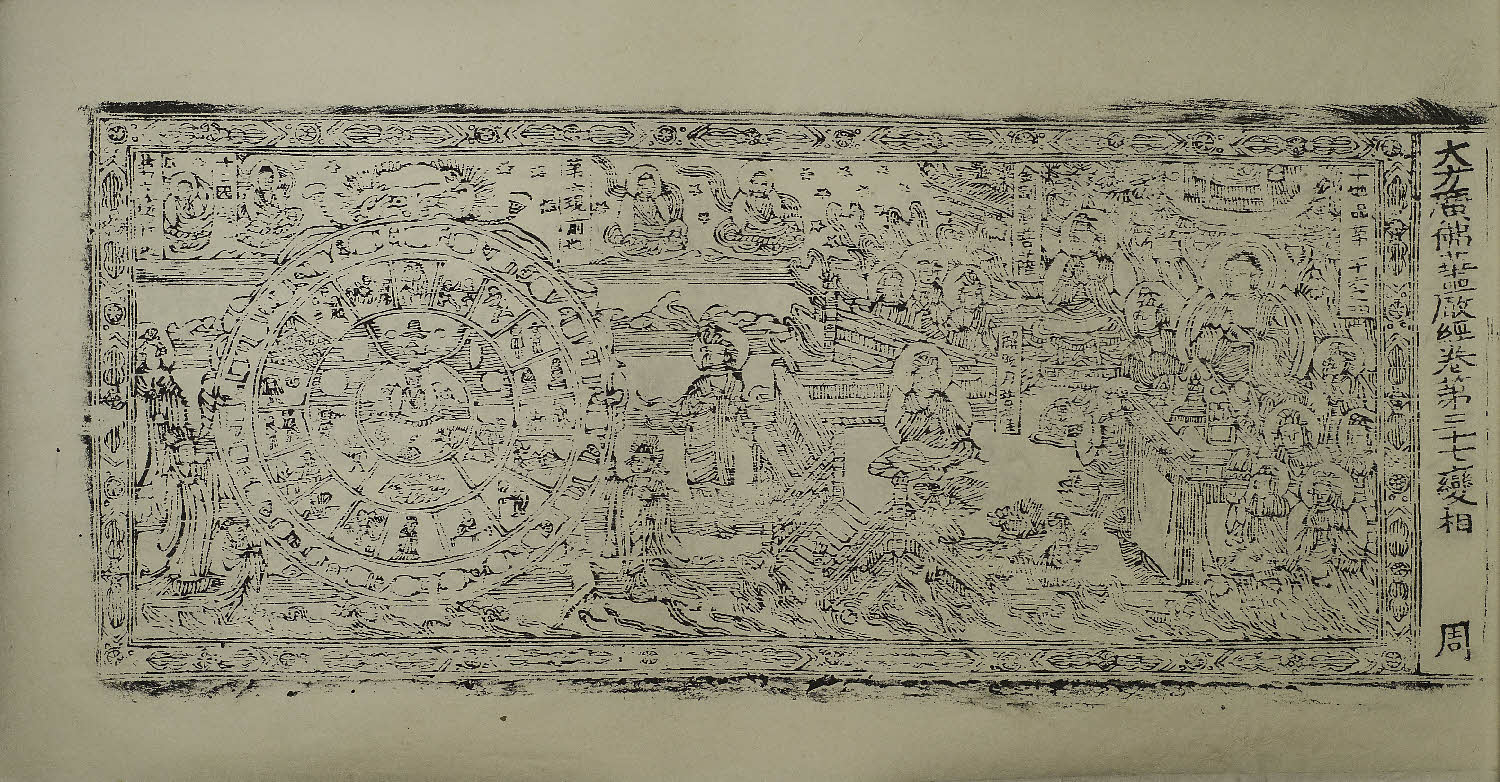 大方廣佛華嚴經卷第三十七變相 周
十地品第二十六之
金剛藏菩薩
解脫月菩薩
第六現前地